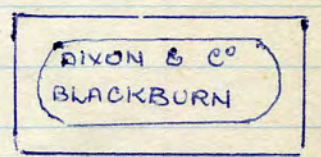 DIXON & Cº
BLACKBURN